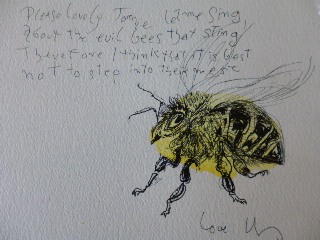 Please lovely Tom, let me sing,
about the evil bees that sting,
Therefore I think that it is best
not to step into their nest
Love